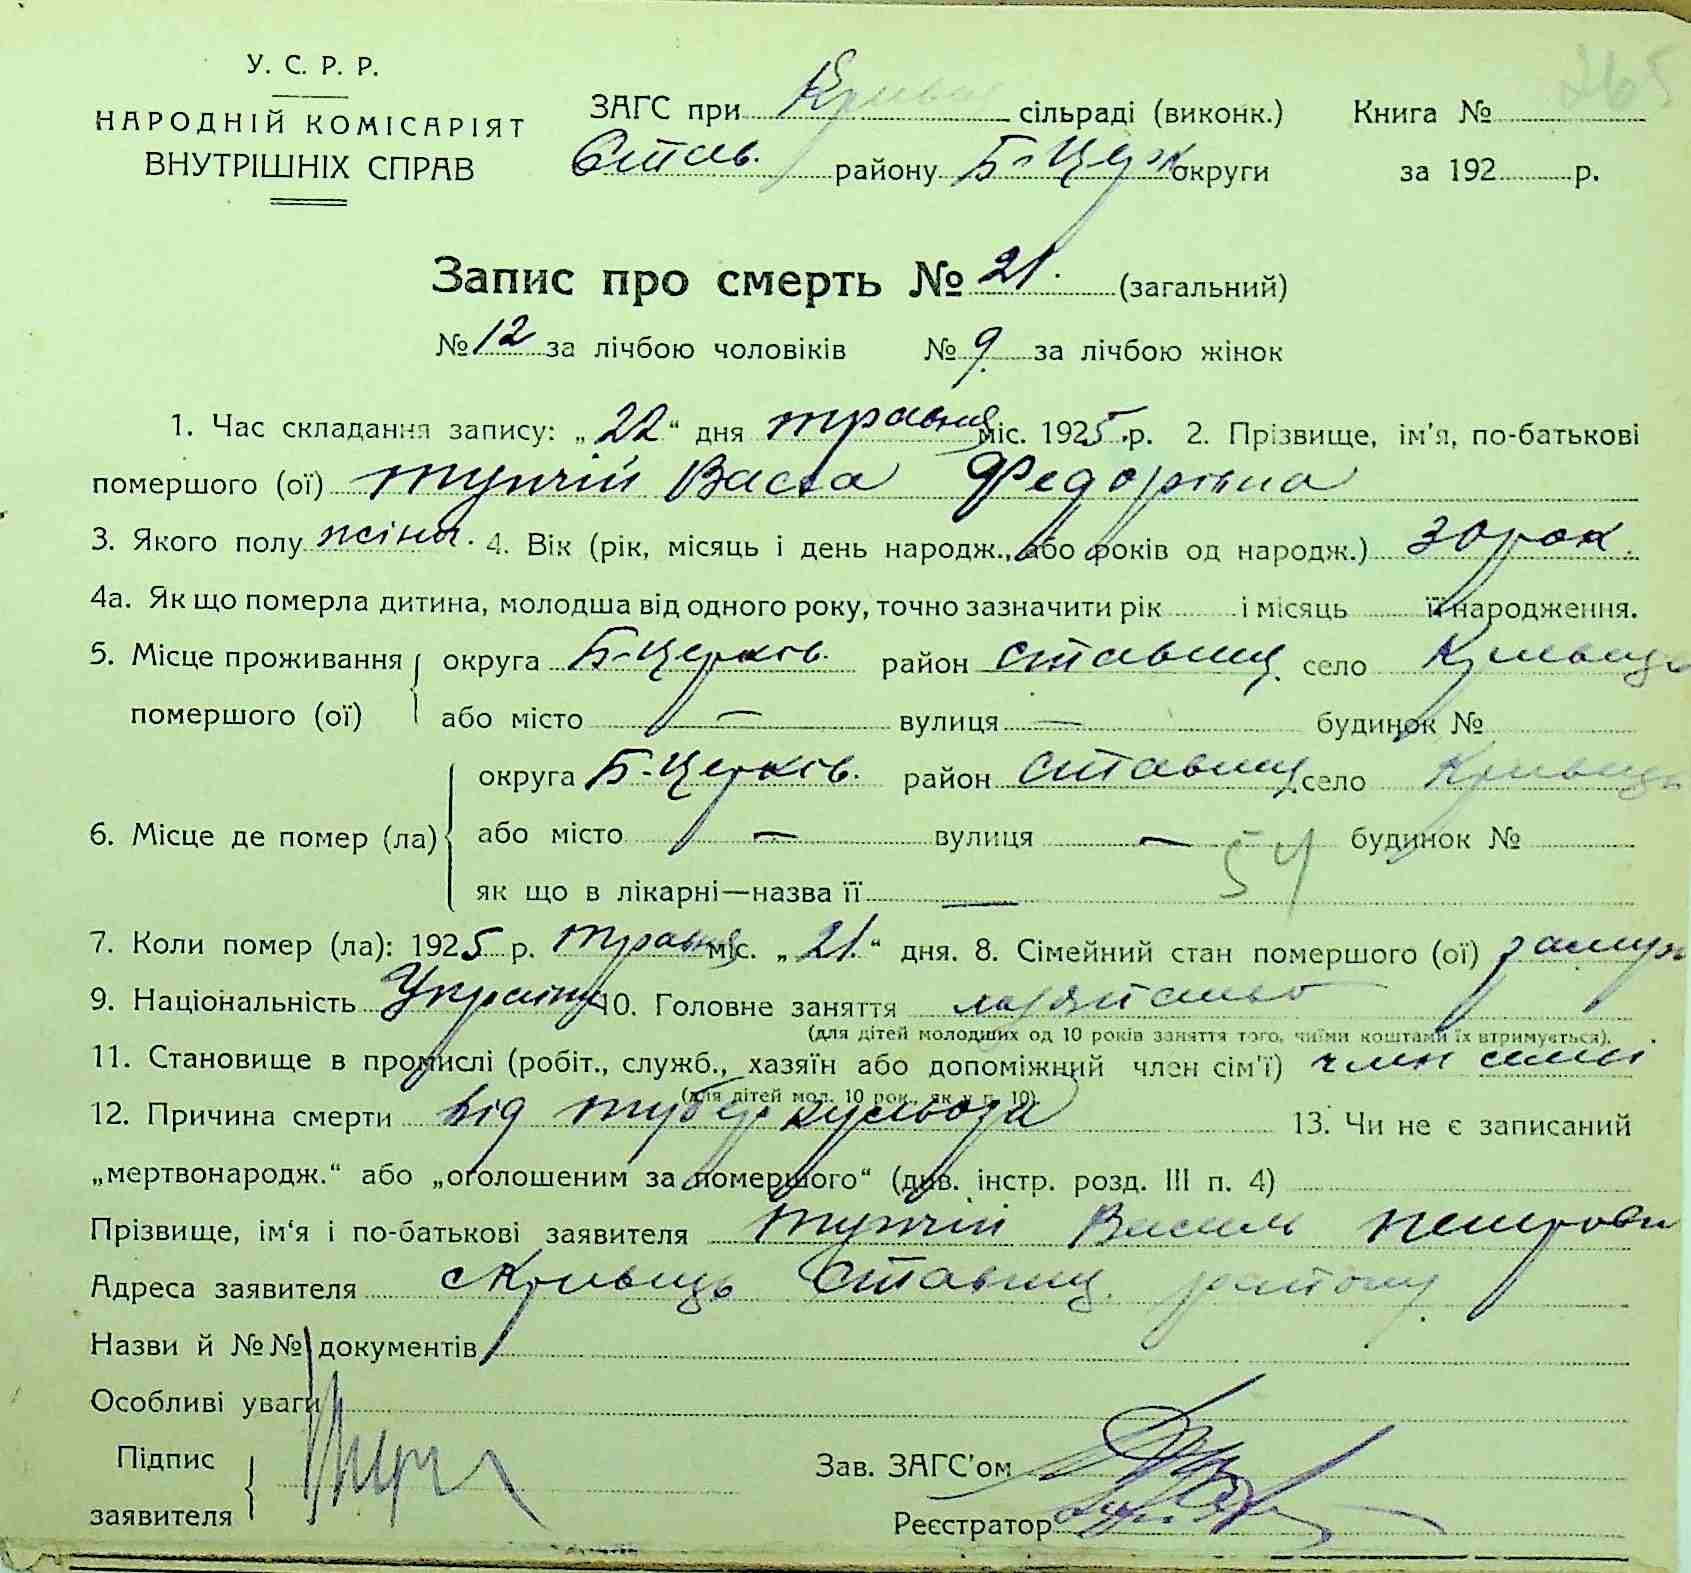 265
У. С. Р. Р.
НАРОДНІЙ КОМІСАРІЯТ
ВНУТРІШНІХ СПРАВ
ЗАГС при сільраді (виконк.) Книга №
Став. району Б-Церк округи за 192 р.
Запис про смерть № 21. (загальний)
№ 12 за лічбою чоловіків № 9 за лічбою жінок
1. Час складання запису: „22“ дня травня міс. 1925 р. 2. Прізвище, ім'я, по-батькові
помершого (ої) Тупчій Васса Федорівна
3. Якого полу жіноч. 4. Вік (рік, місяць і день народж., або років од народж.) 30 рок.
4а. Як що померла дитина, молодша від одного року, точно зазначити рік і місяць її народження.
5. Місце проживання помершого (ої) округа Б-Церків. район Ставищ. село Кривець
або місто — вулиця — будинок №
6. Місце де помер (ла) округа Б-Церків. район Ставищ. село Кривець
або місто — вулиця — будинок №
54
як що в лікарні—назва її —
7. Коли помер (ла): 1925 р. травня міс. „21.“ дня. 8. Сімейний стан помершого (ої) замуж
9. Національність Україн 10. Головне заняття
(для дітей молодших од 10 років заняття того, чиїми коштами їх втримується).
11. Становище в промислі (робіт., служб., хазяїн або допоміжний член сім'ї) член сімї
(для дітей мол. 10 рок., як у п. 10).
12. Причина смерти від туберкульоза 13. Чи не є записаний
„мертвонародж.“ або „оголошеним за помершого“ (див. інстр. розд. III п. 4)
Прізвище, ім‘я і по-батькові заявителя Тупчій Василь Петрови
Адреса заявителя с Кривець Ставищ. району
Назви й №№ документів
Особливі уваги
Підпис заявителя
Зав. ЗАГС'ом
Реєстратор